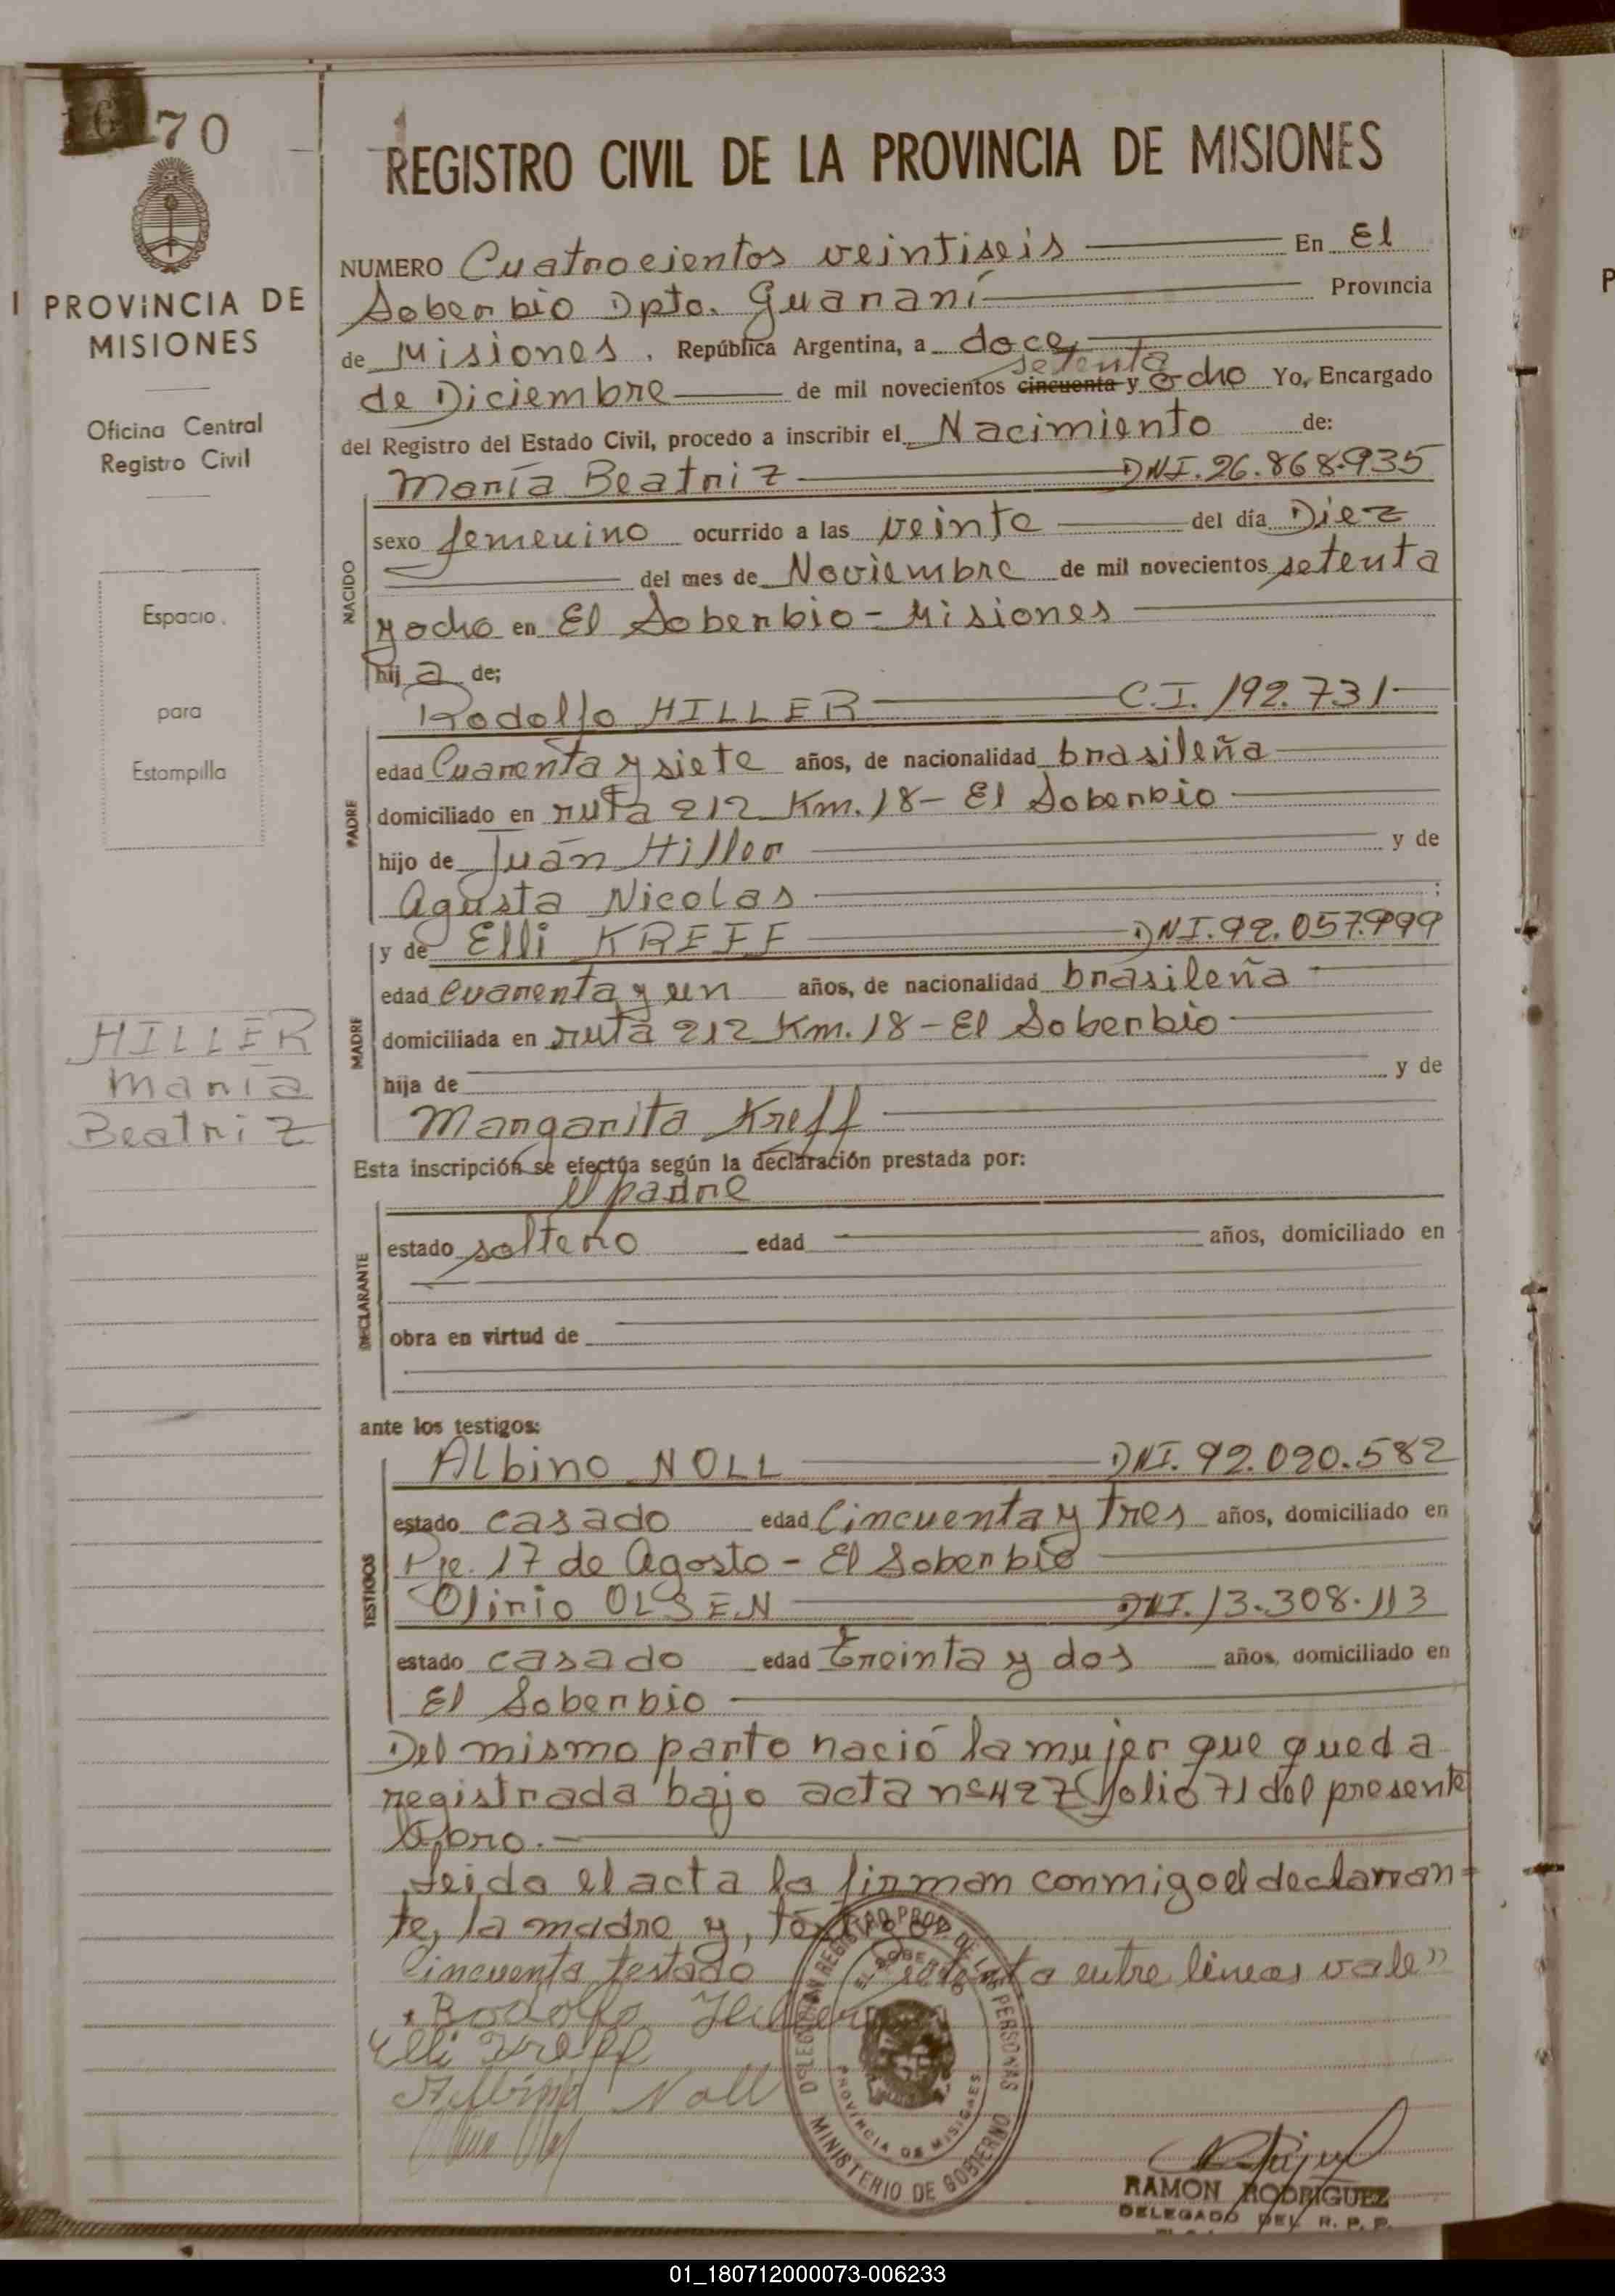 70
PROVINCIA DE
MISIONES
Oficina Central
Registro Civil
Espacio
para
Estampilla
HILLER
María
Beatriz
REGISTRO CIVIL DE LA PROVINCIA DE MISIONES
NUMERO Cuatrocientos veintiseis En El
Soberbio Dpto. Guaraní Provincia
de Misiones. República Argentina, a doce
setenta
de Diciembre de mil novecientos cincuenta y ocho Yo, Encargado
del Registro del Estado Civil, procedo a inscribir el Nacimiento de:
María Beatriz DNI. 26.868.935
NACIDO
sexo femenino ocurrido a las veinte del día Diez
del mes de Noviembre de mil novecientos setenta
y ocho en El Soberbio - Misiones
hij a de;
Rodolfo HILLER C.I. 192.731
PADRE
edad Cuarenta y siete años, de nacionalidad brasileña
domiciliado en ruta 212 Km. 18 - El Soberbio
hijo de Juán Hiller y de
Agusta Nicolas ;
y de Elli KREFF DNI. 92.057.999
MADRE
edad cuarenta y un años, de nacionalidad brasileña
domiciliada en ruta 212 Km. 18 - El Soberbio
hija de y de
Margarita Kreff
Esta inscripción se efectúa según la declaración prestada por:
el padre
DECLARANTE
estado soltero edad años, domiciliado en
obra en virtud de
ante los testigos:
Albino NOLL DNI. 92.020.582
TESTIGOS
estado casado edad Cincuenta y Tres años, domiciliado en
Pje. 17 de Agosto - El Soberbio
Olirio OLSEN DNI. 13.308.113
estado casado edad Treinta y dos años, domiciliado en
El Soberbio
Del mismo parto nació la mujer que queda
registrada bajo acta nº 427 folio 71 del presente
libro.-
Leida el acta la firman conmigo el declaran=
te, la madre y, testigos
Cincuenta testado setenta entre lineas vale"
Rodolfo Hiller
Elli Kreff
Albino Noll
DELEGACION REGISTRO PROV. DE LAS PERSONAS
EL SOBERBIO
PROVINCIA DE MISIONES
MINISTERIO DE GOBIERNO
RAMON RODRIGUEZ
DELEGADO DEL R. P. P.
01_180712000073-006233